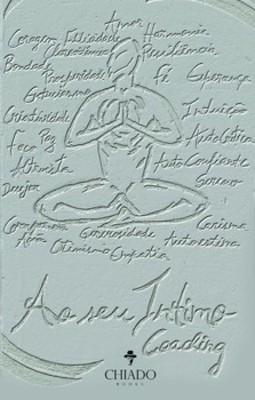 Amor
Coragem Felicidade Harmonia
Clarevidência Resiliência
Bondade
Prosperidade Fé Esperança
Entusiasmo
Criatividade Intuição
Paz
Foco Autocrítica
Altruísta Auto Confiante
Desejos Sereno
Compromisso Generosidade Carisma
Ação Autoestima
Otimismo Empatia
Ao seu Íntimo
Coading
CHIADO
BOOKS